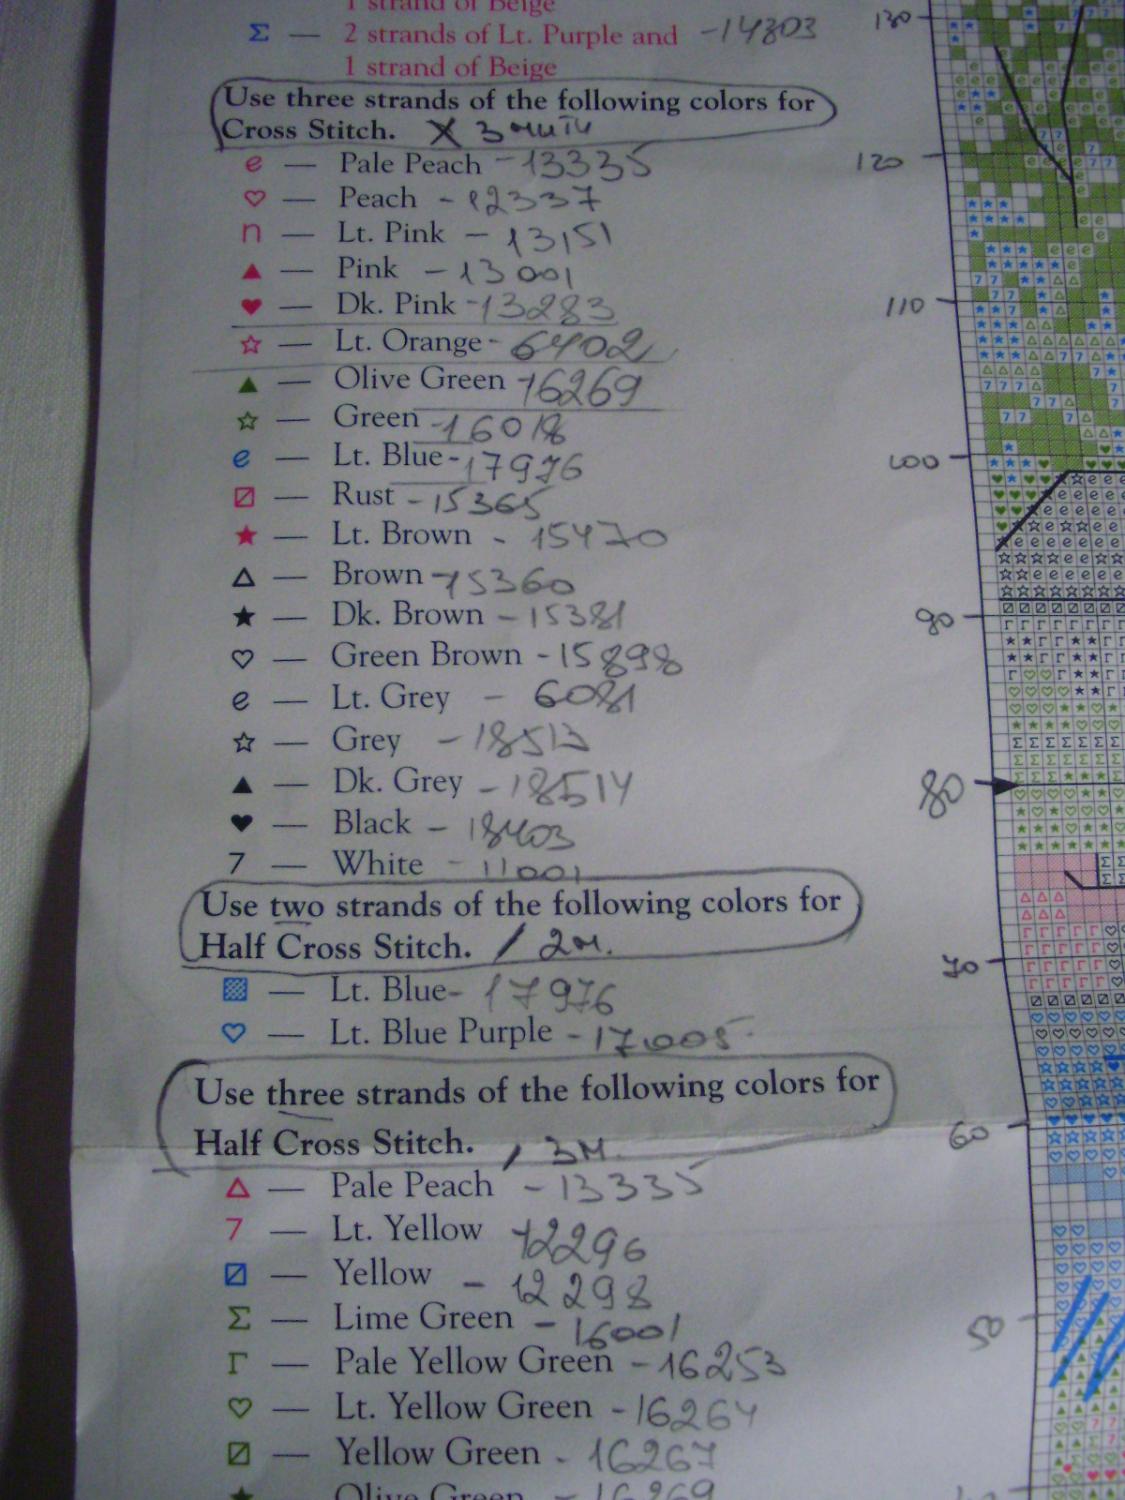 1 strand of Beige
Σ — 2 strands of Lt. Purple and -14803
1 strand of Beige
Use three strands of the following colors for
Cross Stitch. X 3 нити
e — Pale Peach - 13335
♡ — Peach - 12337
n — Lt. Pink - 13151
▲ — Pink - 13001
♥ — Dk. Pink - 13283
☆ — Lt. Orange - 6402
▲ — Olive Green - 16269
☆ — Green - 16018
e — Lt. Blue - 17976
⍁ — Rust - 15365
★ — Lt. Brown - 15470
△ — Brown - 15360
★ — Dk. Brown - 15381
♡ — Green Brown - 15898
e — Lt. Grey - 6081
☆ — Grey - 18513
▲ — Dk. Grey - 18514
♥ — Black - 18403
7 — White - 11001
Use two strands of the following colors for
Half Cross Stitch. / 2н.
▩ — Lt. Blue - 17976
♡ — Lt. Blue Purple - 17005
Use three strands of the following colors for
Half Cross Stitch. / 3н.
△ — Pale Peach - 13335
7 — Lt. Yellow - 12296
⍁ — Yellow - 12298
Σ — Lime Green - 16001
Γ — Pale Yellow Green - 16253
♡ — Lt. Yellow Green - 16264
⍁ — Yellow Green - 16267
★ — Olive Green - 16269
130
120
110
100
90
80
70
60
50